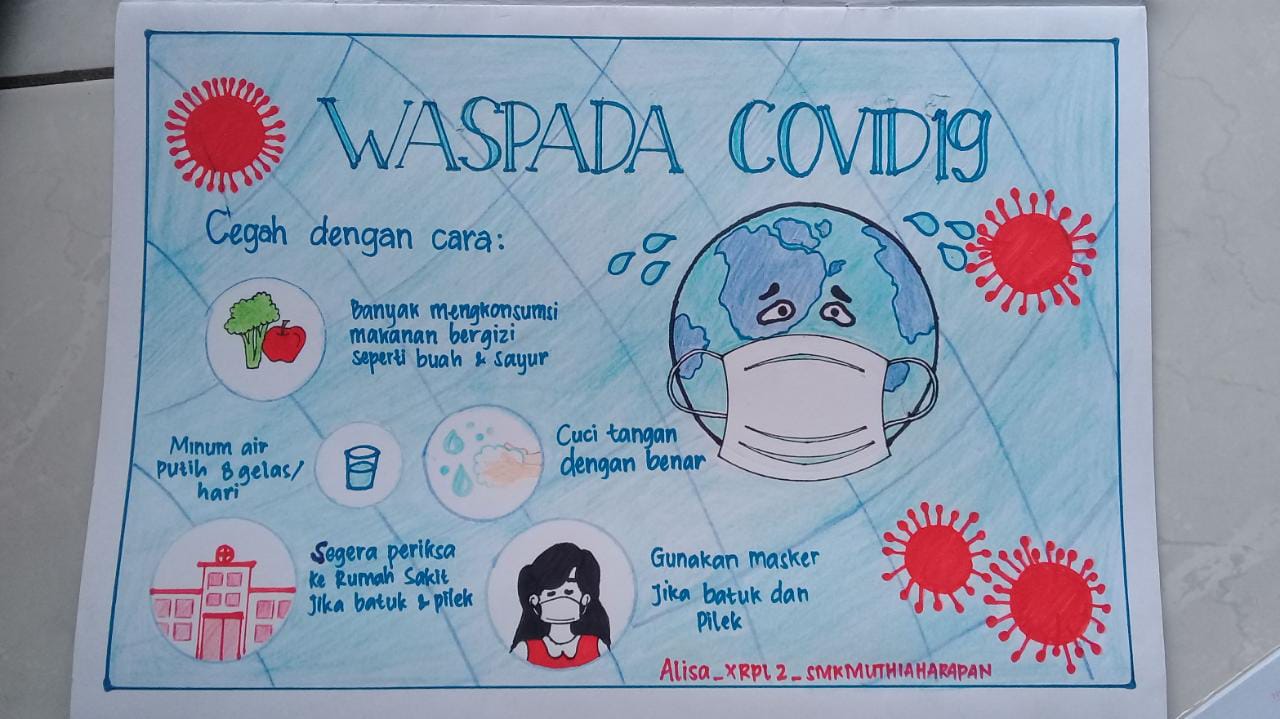 WASPADA COVID19
Cegah dengan cara:
Banyak mengkonsumsi
makanan bergizi
seperti buah & sayur
Minum air
putih 8 gelas/
hari
Cuci tangan
dengan benar
Segera periksa
ke Rumah Sakit
Jika batuk & pilek
Gunakan masker
Jika batuk dan
Pilek
Alisa_XRPL2_SMKMUTHIAHARAPAN